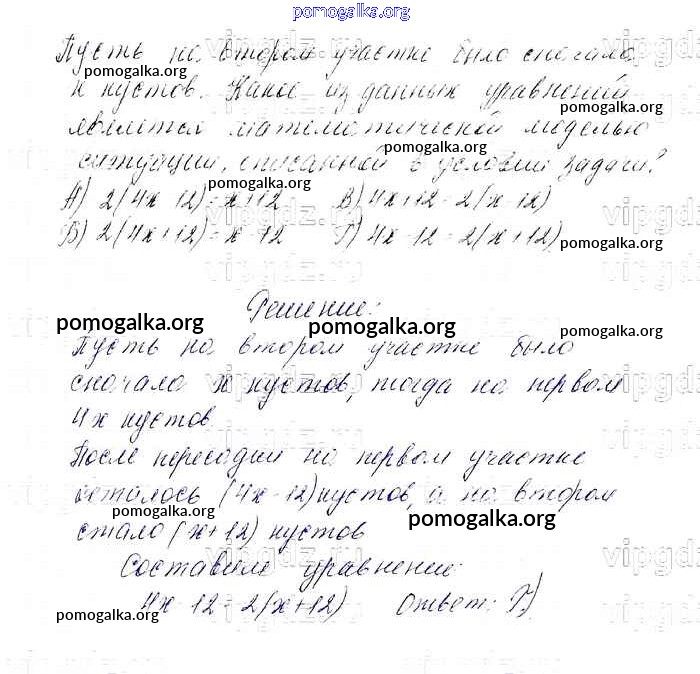 pomogalka.org
Пусть на втором участке было сначала
pomogalka.org
х кустов. Какое из данных уравнений
pomogalka.org
является математической моделью
pomogalka.org
ситуации, описанной в условии задачи?
pomogalka.org
А) 2(4х-12)=х+12 В) 4х+12=2(х-12)
Б) 2(4х+12)=х-12 Г) 4х-12=2(х+12)
pomogalka.org
vipgdz.ru
Решение:
pomogalka.org pomogalka.org pomogalka.org
Пусть на втором участке было
сначала х кустов, тогда на первом
4х кустов.
pomogalka.org
После пересадки на первом участке
осталось (4х-12) кустов, а на втором
pomogalka.org pomogalka.org
стало (х+12) кустов
Составим уравнение:
4х-12=2(х+12) Ответ: Г)
pomogalka.org